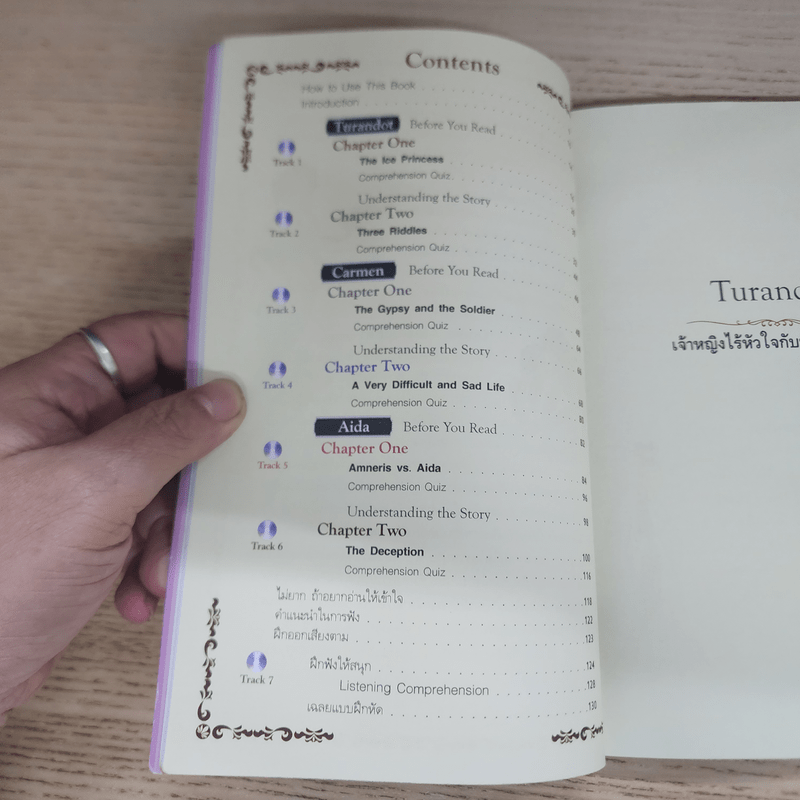 Contents
How to Use This Book
Introduction
Turandot Before You Read
Track 1 Chapter One
The Ice Princess
Comprehension Quiz
Understanding the Story
Track 2 Chapter Two
Three Riddles
Comprehension Quiz
Carmen Before You Read
Track 3 Chapter One
The Gypsy and the Soldier
Comprehension Quiz
Understanding the Story
Track 4 Chapter Two
A Very Difficult and Sad Life
Comprehension Quiz 80
Aida Before You Read 82
Track 5 Chapter One
Amneris vs. Aida 84
Comprehension Quiz 96
Understanding the Story 98
Track 6 Chapter Two
The Deception 100
Comprehension Quiz 116
ไม่ยาก ถ้าอยากอ่านให้เข้าใจ 118
คำแนะนำในการฟัง 122
ฝึกออกเสียงตาม 123
Track 7 ฝึกฟังให้สนุก 124
Listening Comprehension 128
เฉลยแบบฝึกหัด 130
เจ้าหญิงไร้หัวใจกับ